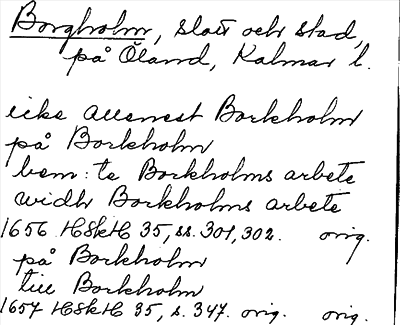 Borgholm, slott och stad,
på Öland, Kalmar l.
icke allenest Borkholm
på Borkholm
bem:te Borkholms arbete
widh Borkholms arbete
1656 HSkH 35, ss. 301, 302. orig.
på Borkholm
till Borkholm
1657 HSkH 35, s. 347. orig. orig.